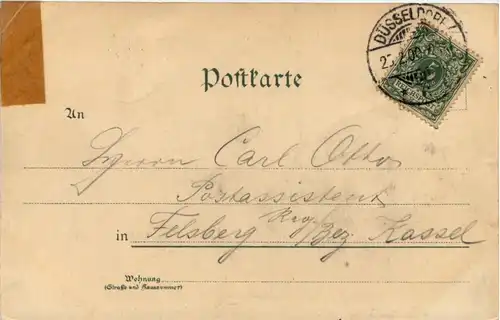 DÜSSELDORF
Postkarte
An
Herrn Carl Otto
Postassistent
in Felsberg Bez. Kassel
Wohnung
(Straße und Hausnummer)